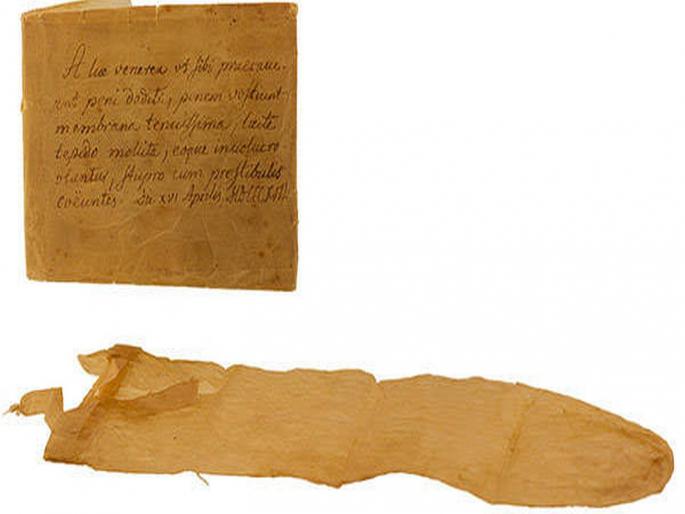 A lue venerea vt sibi praecaue-
ant peni dediti, penem vestiunt
membrana tenuissima, lacte
tepido mollita, eoque inuolucro
vtuntur, stupro cum prostibulis
coëuntes. XVI Aprilis